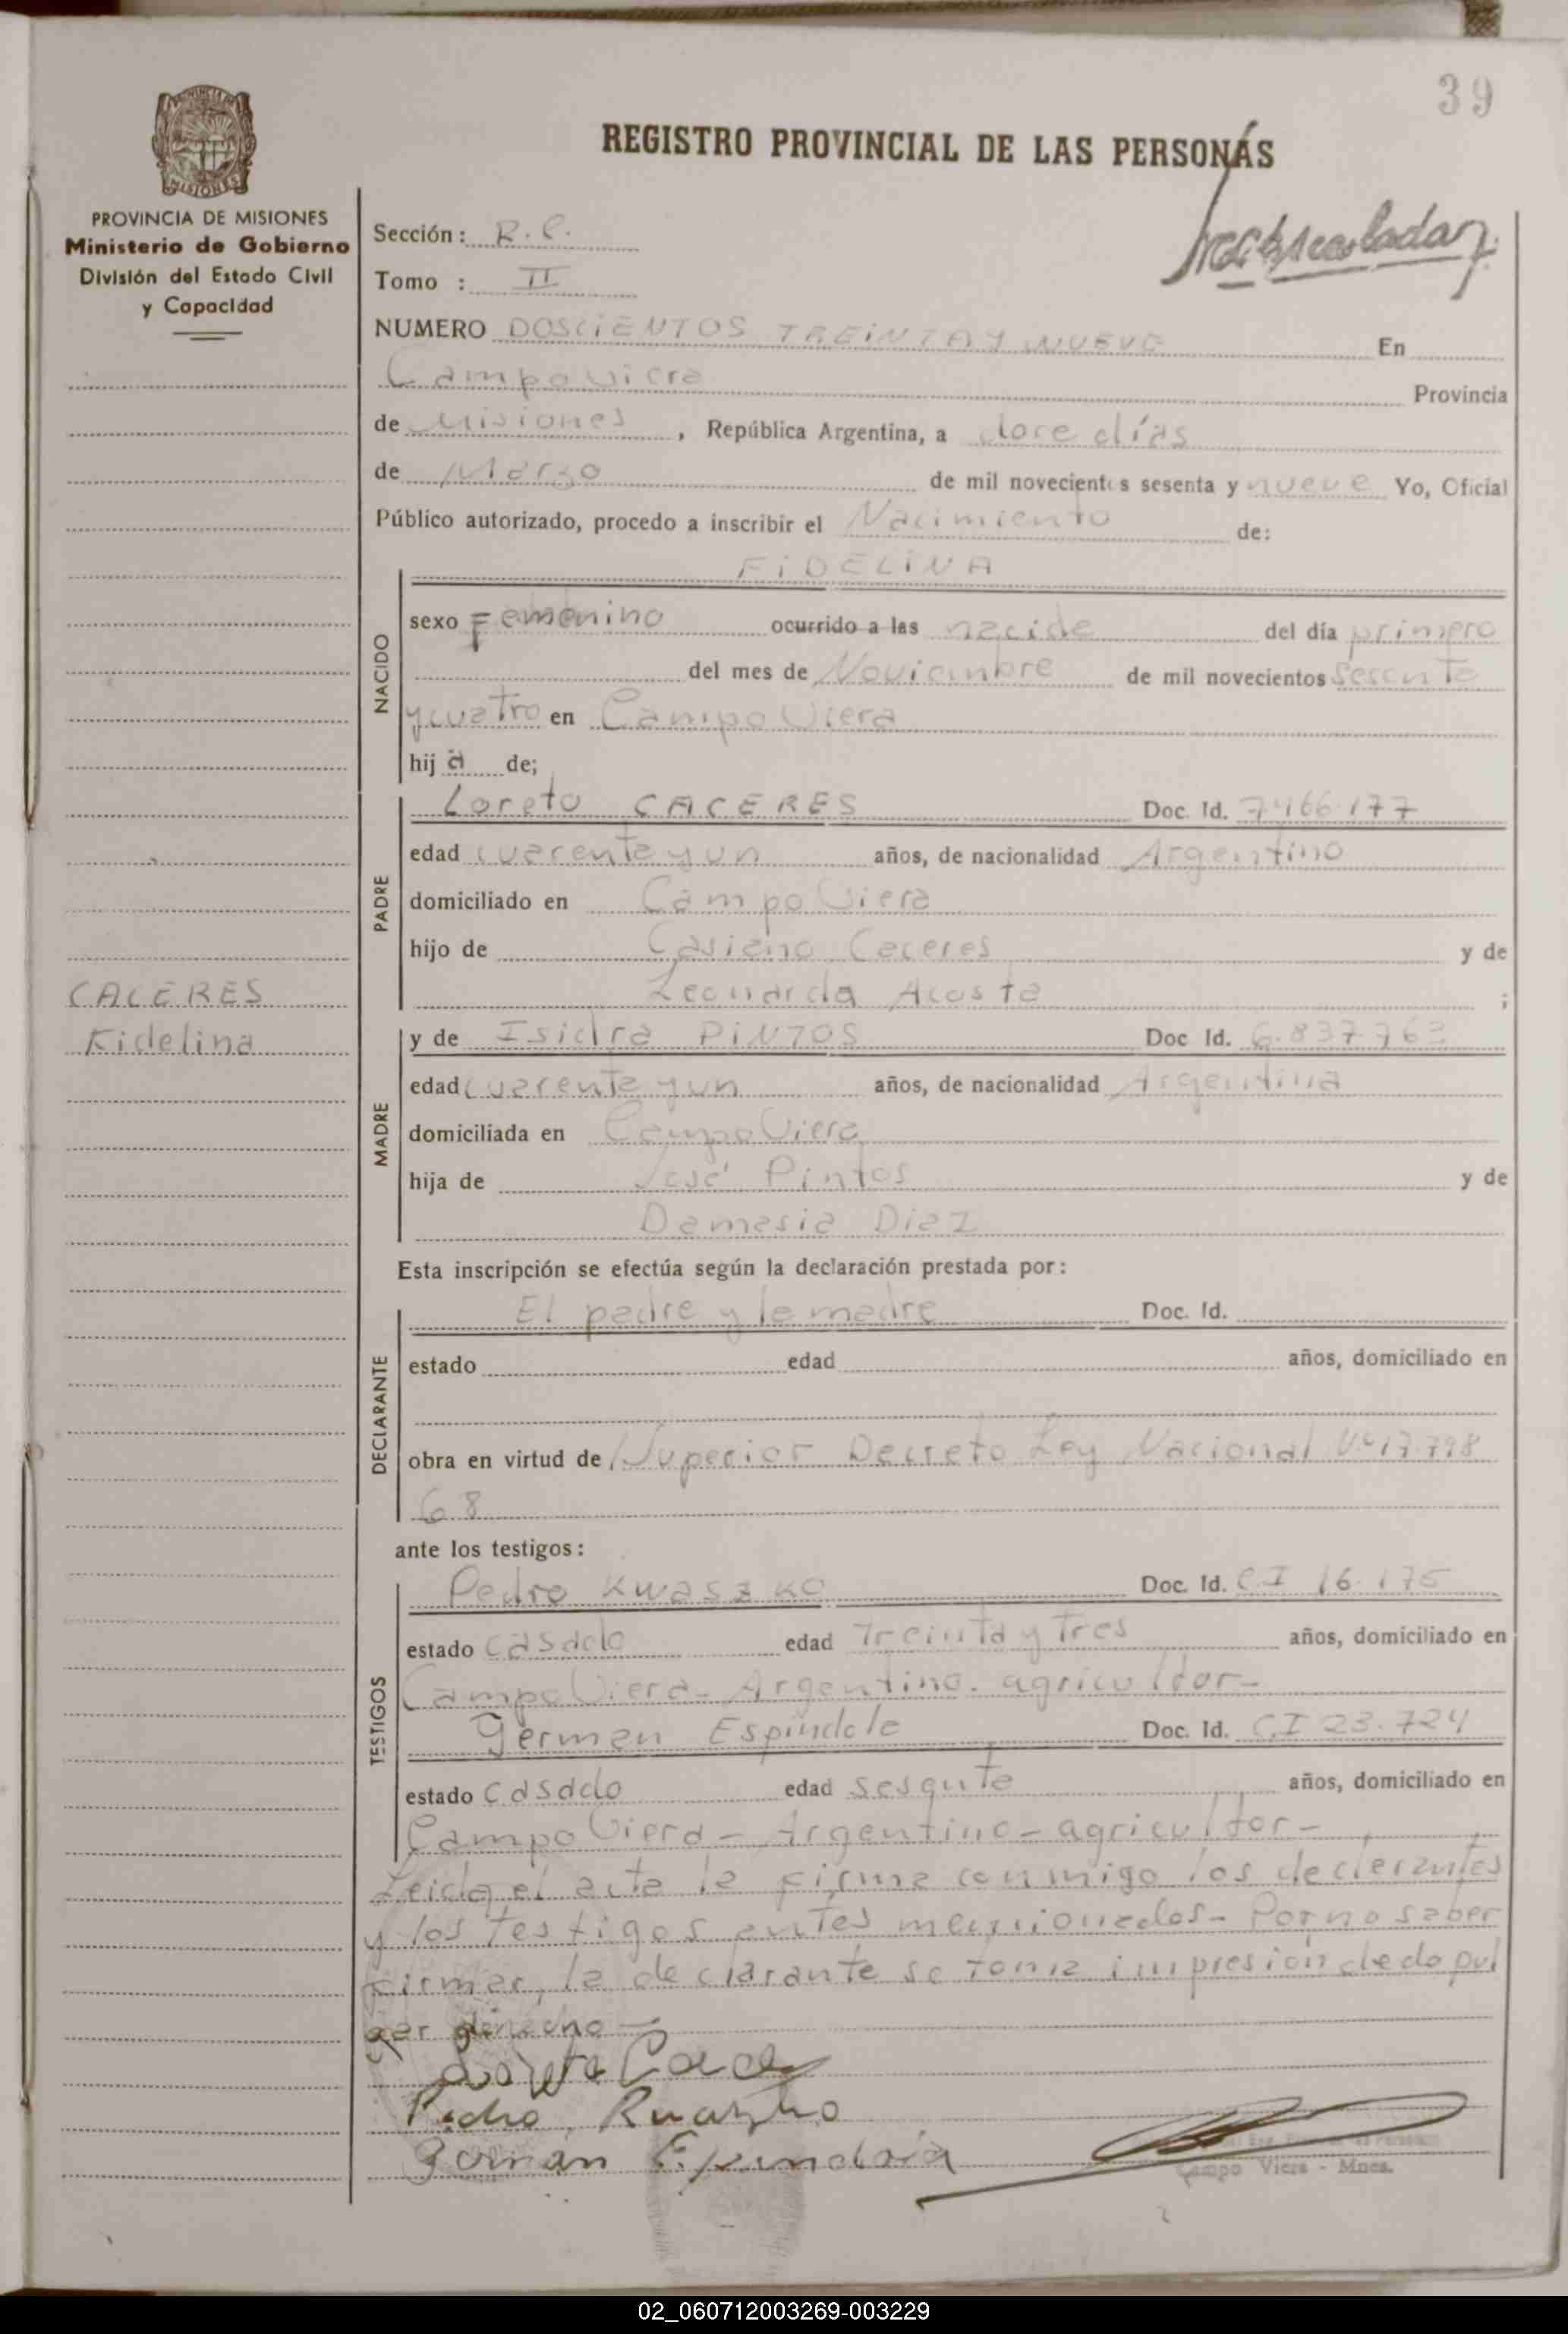 39
REGISTRO PROVINCIAL DE LAS PERSONAS
PROVINCIA DE MISIONES
Ministerio de Gobierno
División del Estado Civil
y Capacidad
Sección: R.C.
Tomo : II
NUMERO DOSCIENTOS TREINTA Y NUEVE En
Campo Viera Provincia
de Misiones, República Argentina, a doce días
de Marzo de mil novecientos sesenta y nueve Yo, Oficial
Público autorizado, procedo a inscribir el Nacimiento de:
FIDELINA
NACIDO
sexo Femenino ocurrido a las nacida del día primero
del mes de Noviembre de mil novecientos sesenta
y cuatro en Campo Viera
hija de;
PADRE
Loreto CACERES Doc. Id. 7466.177
edad cuarenta y un años, de nacionalidad Argentino
domiciliado en Campo Viera
hijo de Casiano Caceres y de
Leonarda Acosta ;
CACERES
Fidelina
MADRE
y de Isidra PINTOS Doc Id. 6.837.763
edad cuarenta y un años, de nacionalidad Argentina
domiciliada en Campo Viera
hija de José Pintos y de
Damasia Diaz
Esta inscripción se efectúa según la declaración prestada por:
DECLARANTE
El padre y la madre Doc. Id.
estado edad años, domiciliado en
obra en virtud de Superior Decreto Ley Nacional Nº 17.798
68
ante los testigos:
TESTIGOS
Pedro KWASZKO Doc. Id. CI 16.175
estado casado edad Treinta y Tres años, domiciliado en
Campo Viera - Argentino - agricultor -
German Espindola Doc. Id. CI 23.724
estado casado edad sesenta años, domiciliado en
Campo Viera - Argentino - agricultor -
Leida el acta la firma conmigo los declarantes
y los testigos antes mencionados - Por no saber
firmar, la declarante se toma impresión dedo pul
gar derecho -
Pedro Kwaszko
German Espindola
Campo Viera - Mnes.
02_060712003269-003229